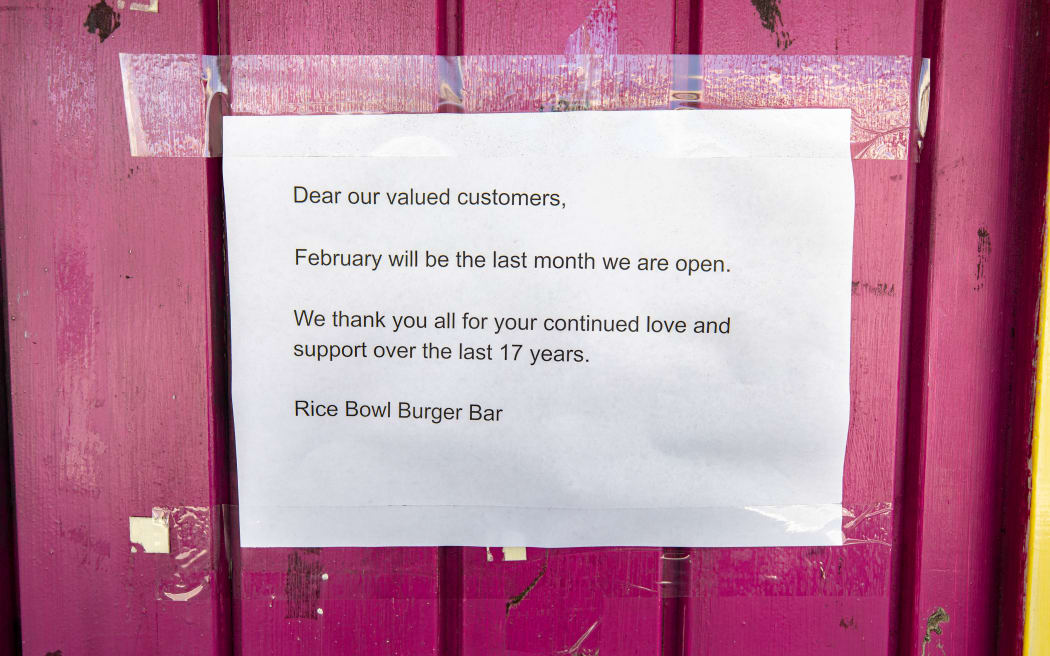 Dear our valued customers,
February will be the last month we are open.
We thank you all for your continued love and
support over the last 17 years.
Rice Bowl Burger Bar